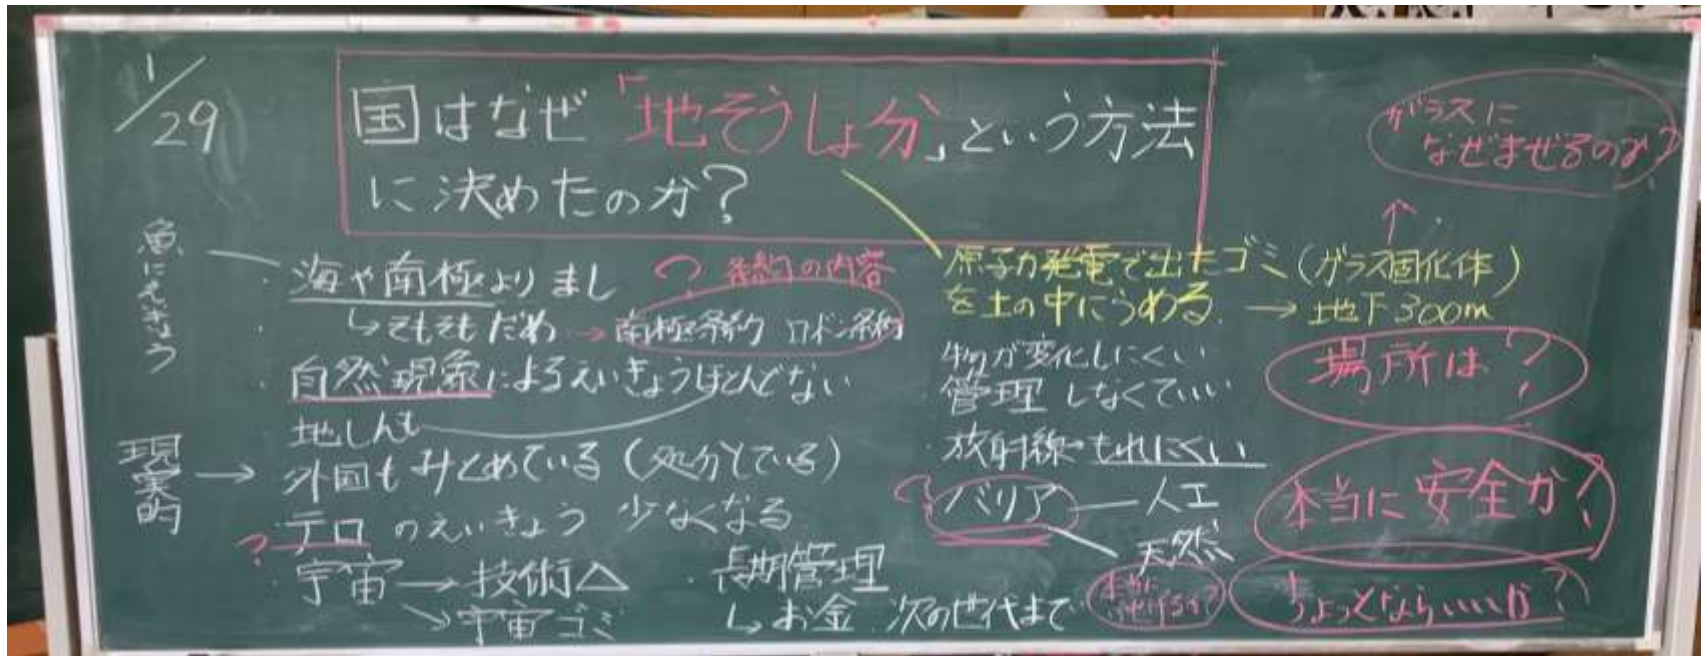 1/29
国はなぜ「地そうしょ分」という方法
に決めたのか?
ガラスに
なぜまぜるのか?
魚にえいきょう
・海や南極よりまし
↳そもそもだめ → 南極条約 ロンドン条約
? 条約の内容
・自然現象によるえいきょうほとんどない
地しんも
現実的 →
外国もみとめている(処分している)
?テロのえいきょう 少なくなる
・宇宙 → 技術△
↘宇宙ゴミ
・長期管理
↳お金 次の世代まで
原子力発電で出たゴミ(ガラス固化体)
を土の中にうめる。→ 地下300m
物が変化しにくい
管理しなくていい
・放射線もれにくい
?バリア ― 人工
天然
場所は?
本当に安全か?
ちょっとならいいか?